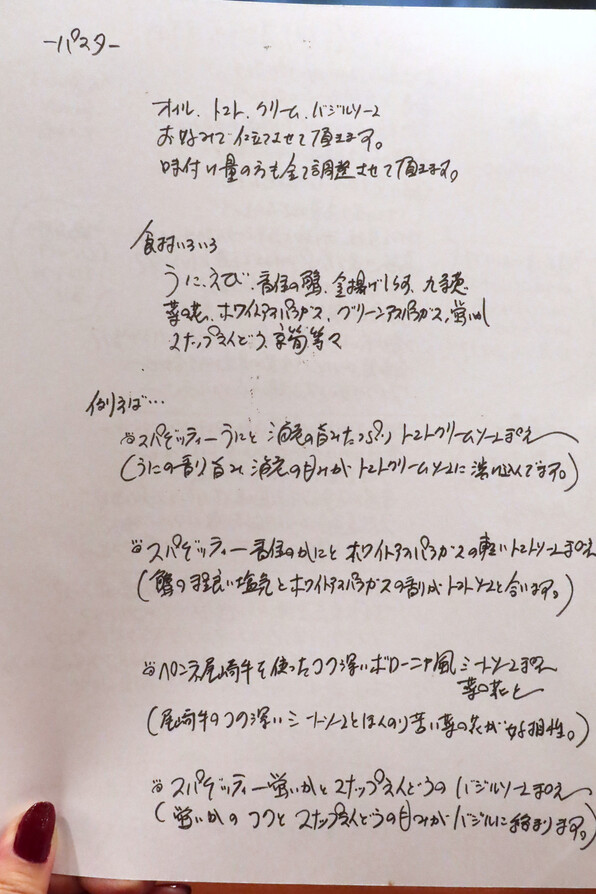 ーパスター
オイル、トマト、クリーム、バジルソース
お好みで仕立てさせて頂きます。
味付け量の方も全て調整させて頂きます。
食材いろいろ
うに、えび、香住の蟹、釜揚げしらす、九条葱
菜の花、ホワイトアスパラガス、グリーンアスパラガス、蛍いか
スナップえんどう、京筍等々
例えば…
スパゲッティーうにと海老の旨みたっぷり トマトクリームソース
(うにの香り旨み 海老の甘みが トマトクリームソースに溶け込んでます。)
スパゲッティー香住のかにと ホワイトアスパラガスの軽いトマトソース
(蟹の程良い塩気とホワイトアスパラガスの香りが トマトソースと合います。)
ペンネ尾崎牛を使ったコク深いボローニャ風 ミートソース
菜の花と
(尾崎牛のコク深い ミートソースとほんのり苦い菜の花が好相性。)
スパゲッティー蛍いかと スナップえんどうの バジルソース
(蛍いかの コクと スナップえんどうの甘みが バジルに絡まります。)